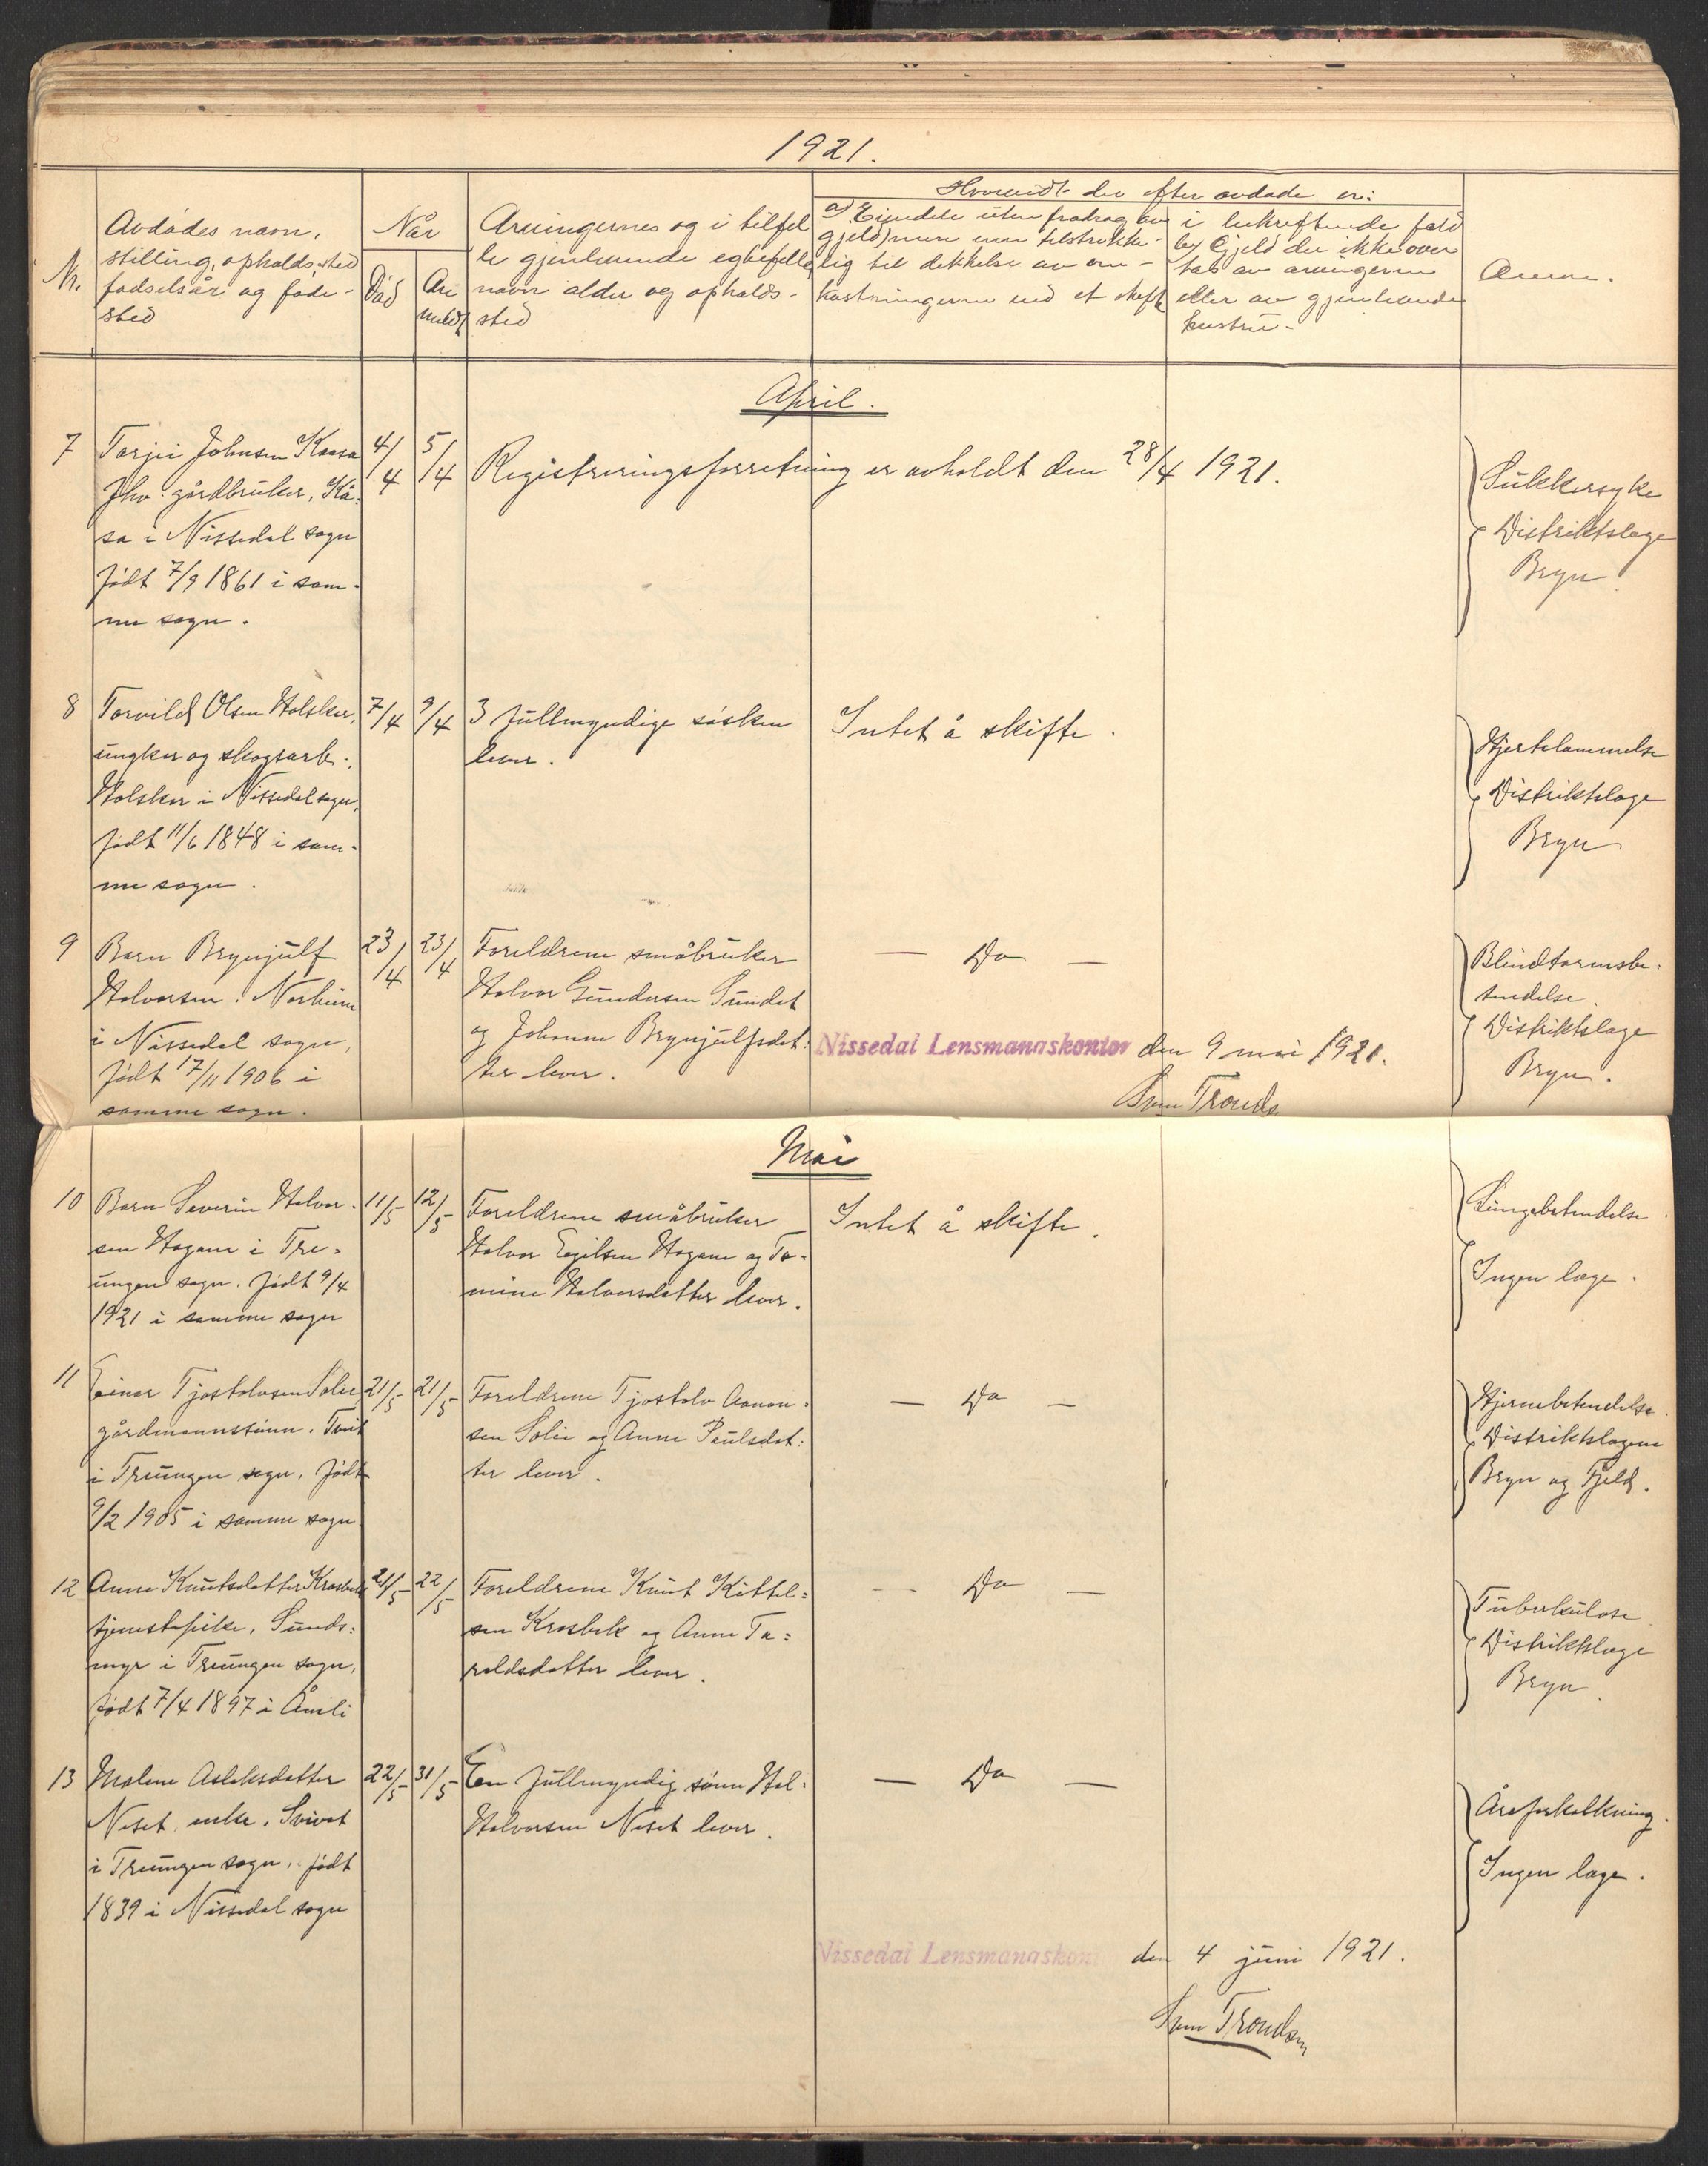 1921.
Nr.
Avdødes navn,
stilling, opholds sted
fødselsår og føde-
sted
Når
Død
An
meldt
Arvingernes og i tilfel
le gjenlevende egtefelle
navn alder og opholds-
sted
Hvorvidt der efter avdøde er:
a) Eiendele uten fradrag av
gjeld) mere enn tilstrekke-
lig til dekkelse av om-
kostningerne ved et skifte
i bekreftende fald
b) Gjeld der ikke over
tas av arvingerne
eller av gjenlevende
hustru-
Anm.
April.
7
Torjei Johnsen Kaasa
fhv. gårdbruker, Kå-
sa i Nissedal sogn
født 7/9 1861 i sam-
me sogn.
4/4
5/4
Registreringsforretning er avholdt den 28/4 1921.
Sukkersyke
Distriktslæge
Bryn
8
Torvild Olsen Holsker,
ungkar og skogsarb.,
Holsker i Nissedal sogn,
født 11/6 1848 i sam-
me sogn.
7/4
9/4
3 fullmyndige søsken
lever.
Intet å skifte.
Hjertelammelse
Distriktslæge
Bryn
9
Barn Brynjulf
Halvorsen. Norheim
i Nissedal sogn,
født 17/11 1906 i
samme sogn.
23/4
23/4
Foreldrene småbruker
Halvor Gundersen Sundet
og Johanne Brynjulfsdat:
ter lever.
— Do —
Blindtarmsbe:
tendelse.
Distriktslæge
Bryn.
Nissedal Lensmannskontor den 9 mai 1921.
Sven Tronds
Mai
10
Barn Severin Halvor-
sen Hagane i Tre-
ungen sogn. født 9/4
1921 i samme sogn
11/5
12/5
Foreldrene småbruker
Halvor Egilsen Hagane og To-
mine Halvorsdatter lever.
Intet å skifte.
Lungebetendelse.
Ingen læge.
11
Einar Tjostolvsen Solie
gårdmannssønn. Tveit
i Treungen sogn, født
9/2 1905 i samme sogn
21/5
21/5
Foreldrene Tjostolv Aanon-
sen Solie og Anne Paulsdat:
ter lever.
— Do —
Hjernebetendelse.
Distriktslægene
Bryn og Fjeld.
12
Anne Knutsdatter Krosbek
tjenestepike, Sunds:
myr i Treungen sogn,
født 7/4 1897 i Åmli
21/5
22/5
Foreldrene Knut Kittel:
sen Krosbek og Anne Ta:
raldsdatter lever.
— Do —
Tuberkulose
Distriktslæge
Bryn.
13
Malene Aslaksdatter
Neset, enke,
i Treungen sogn, født
1839 i Nissedal sogn
22/5
31/5
En fullmyndig sønn Hal:
Halvorsen Neset lever.
— Do —
Åreforkalkning.
Ingen læge.
Nissedal Lensmannskont den 4 juni 1921.
Sven Trondsen